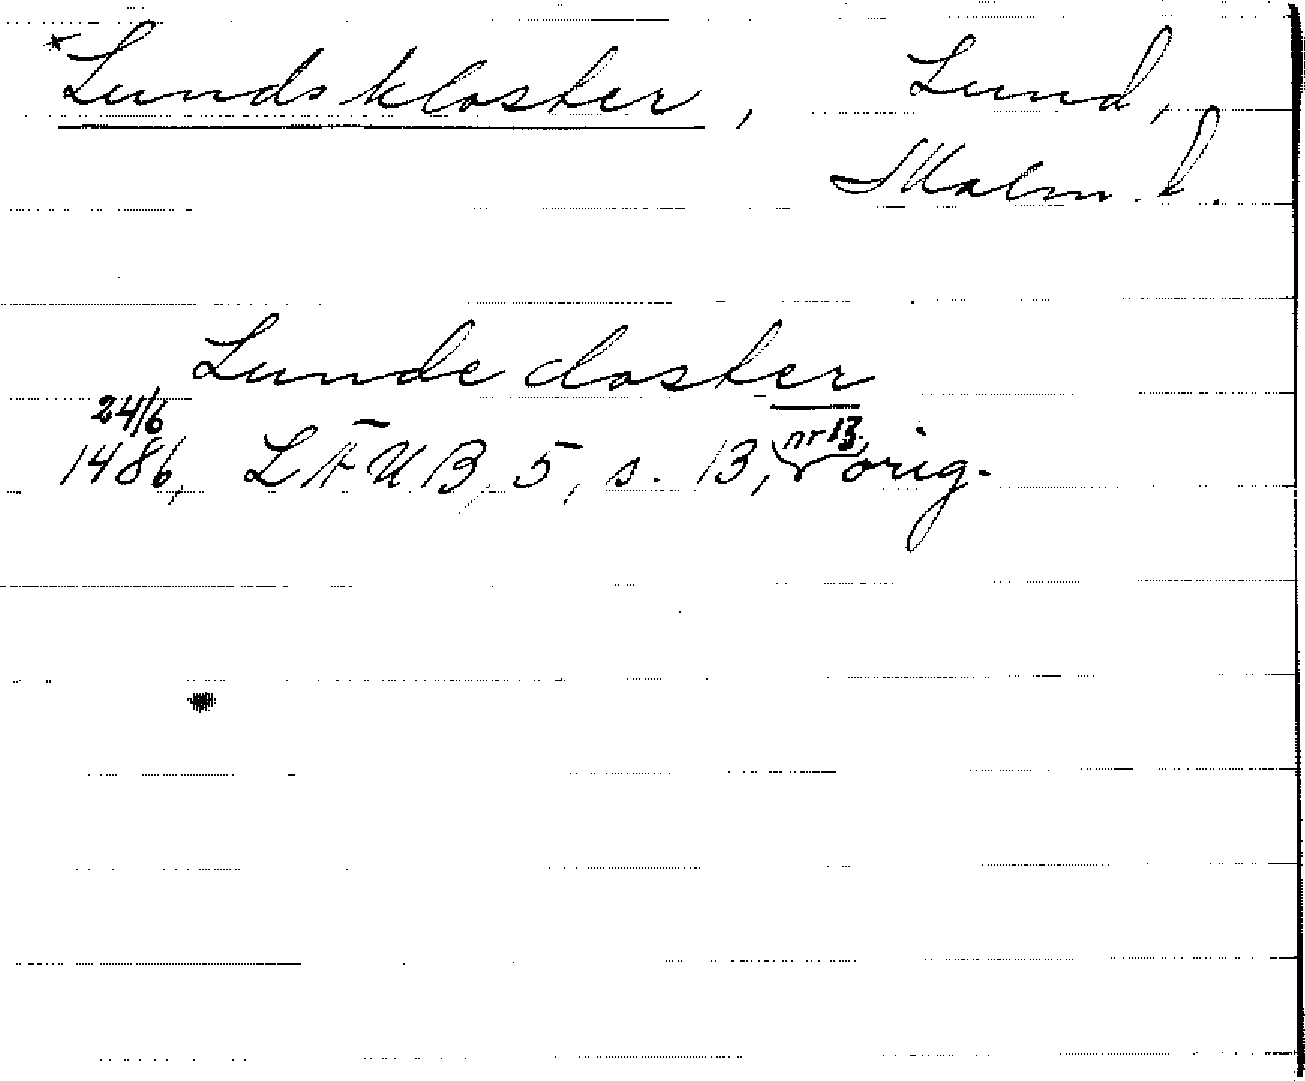 *Lunds kloster, Lund,
Malm. l.
Lunde closter
24/6
1486, LÄUB, 5, s. 13, nr 13, orig.